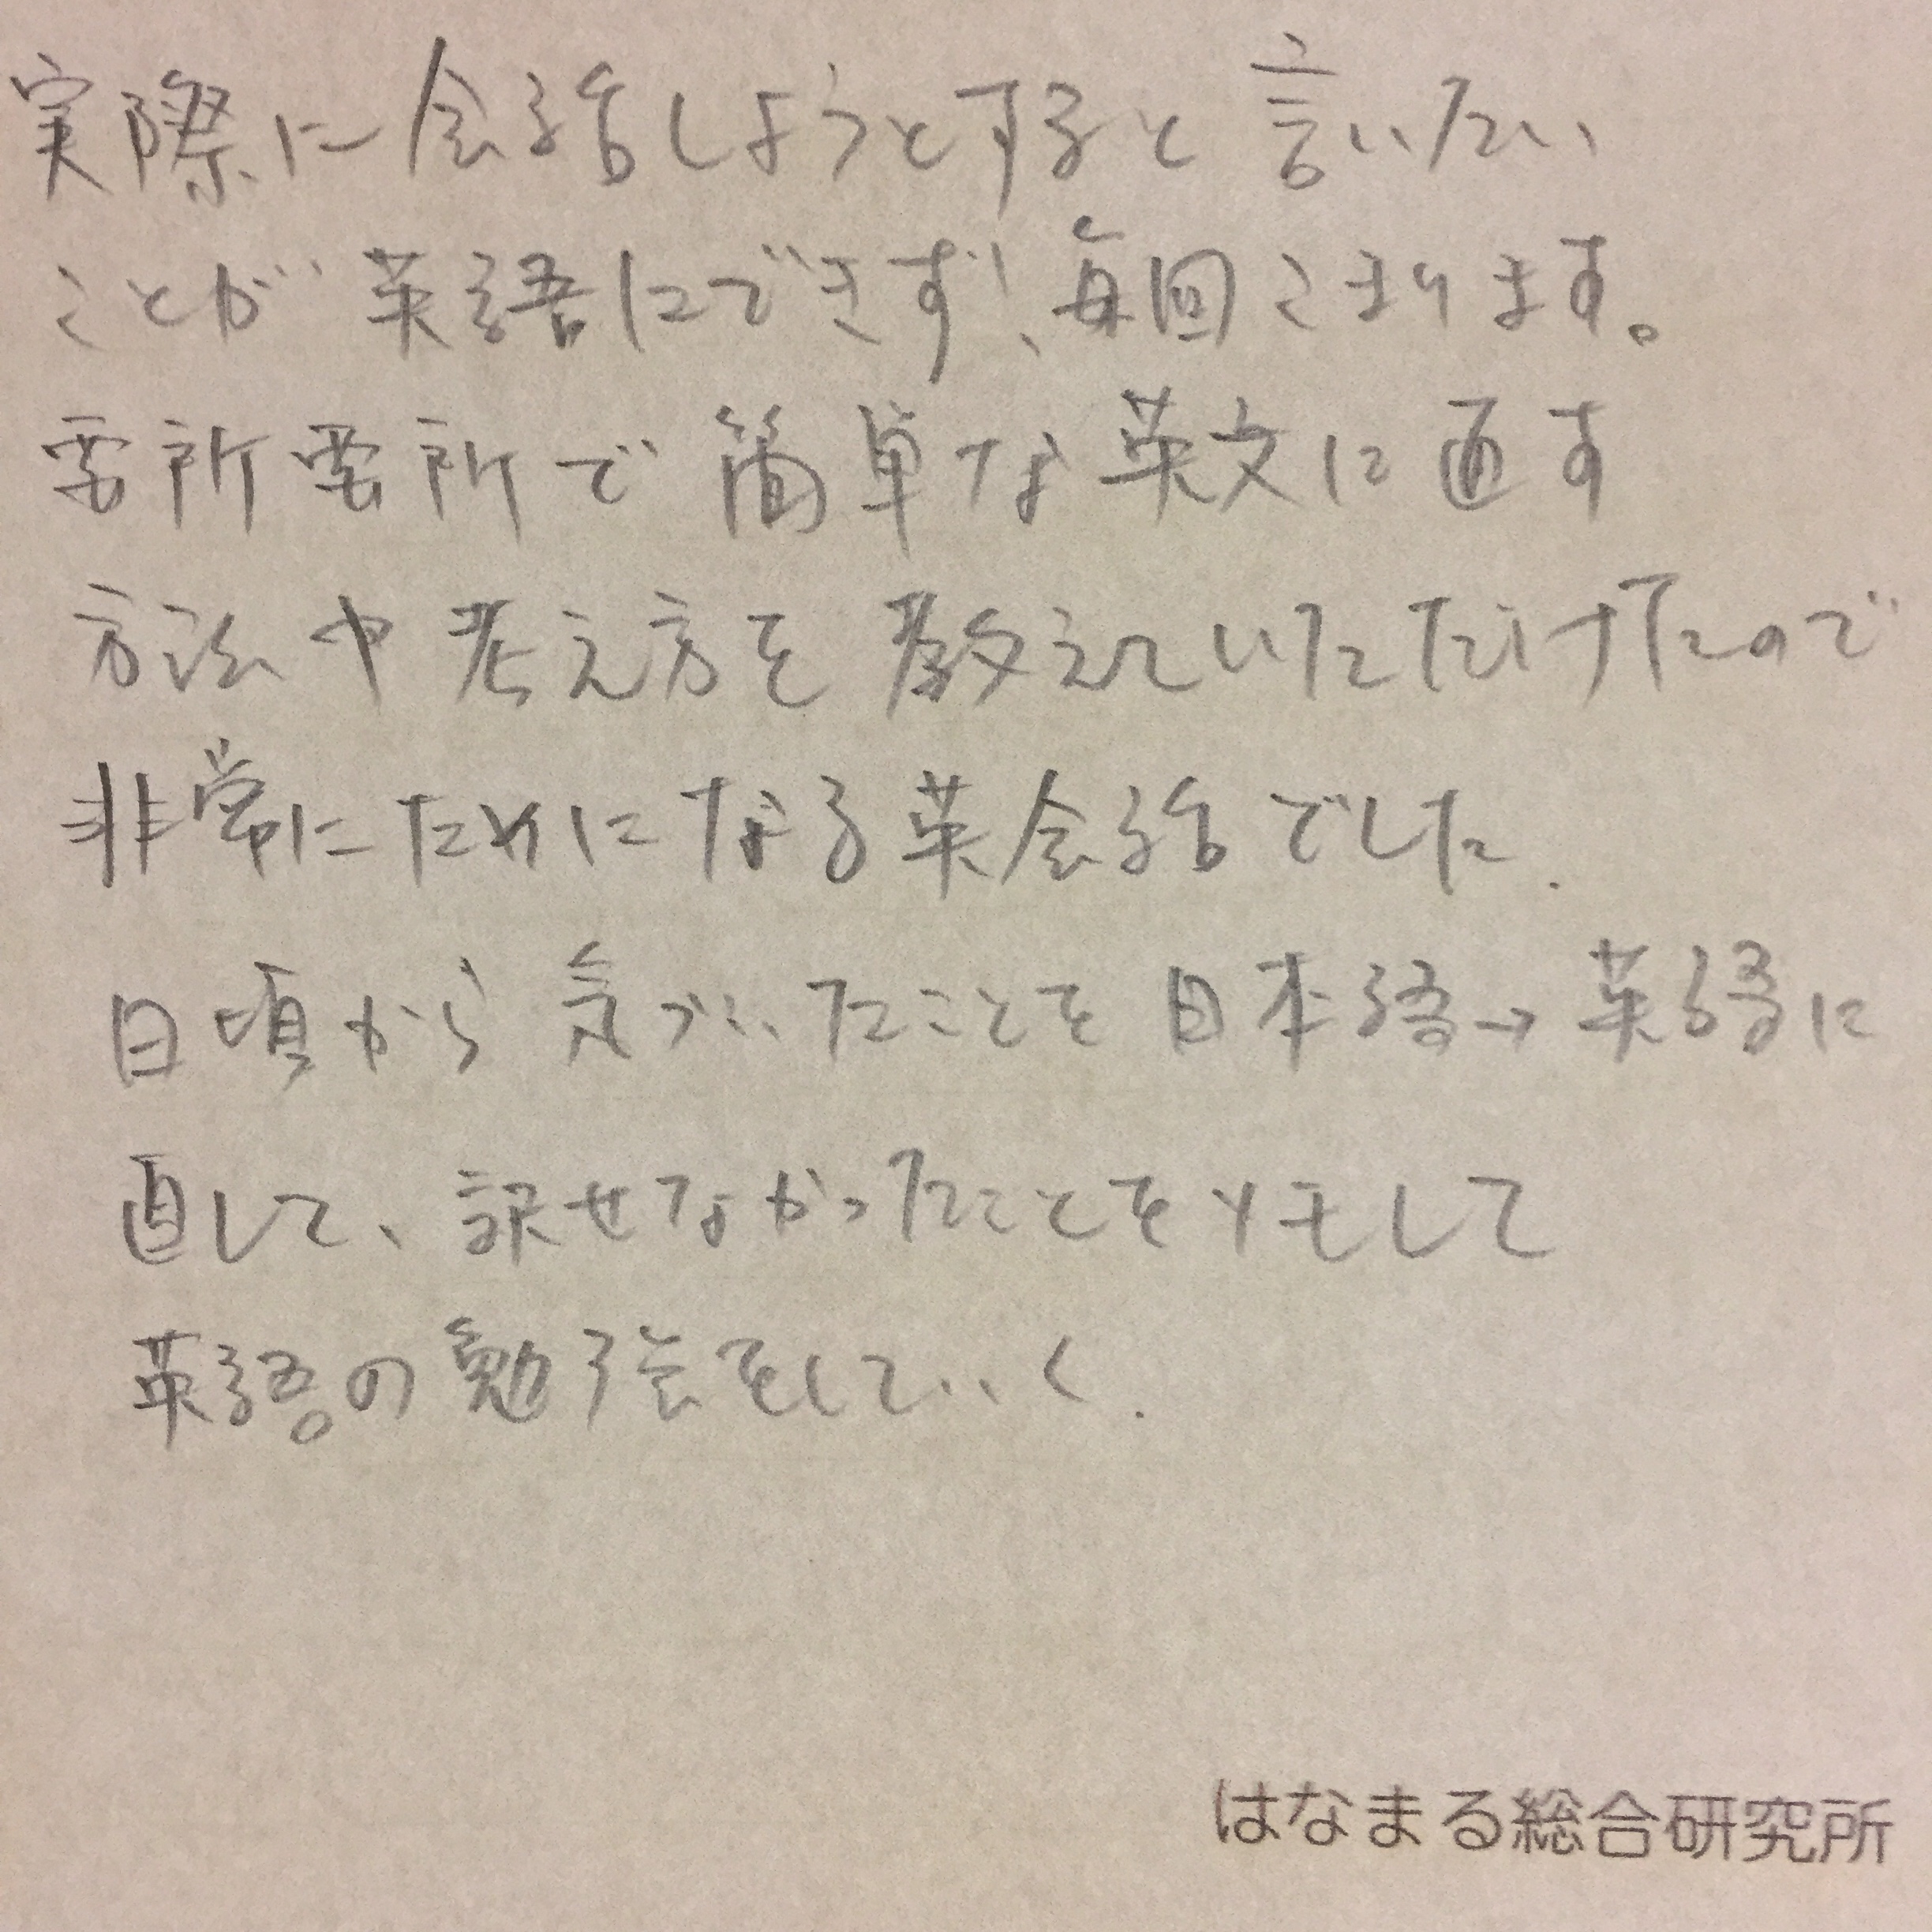 実際に会話しようとすると言いたい
ことが英語にできず、毎回こまります。
要所要所で簡単な英文に直す
方法や考え方を教えていただけたので
非常にためになる英会話でした.
日頃から気づいたことを日本語→英語に
直して、訳せなかったことをメモして
英語の勉強をしていく.
はなまる総合研究所